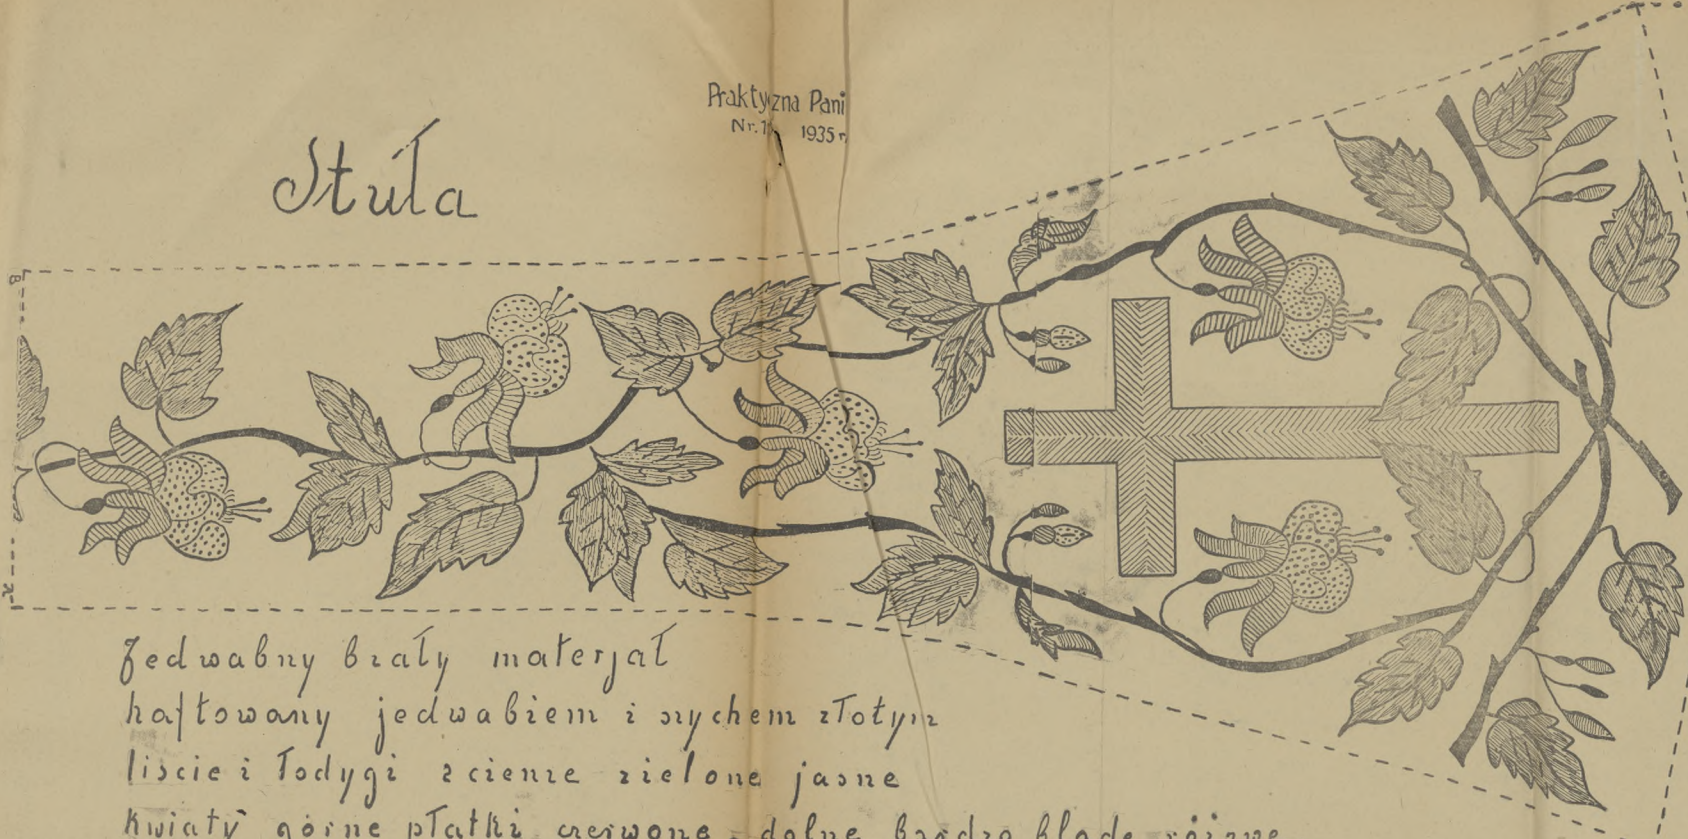 Praktyczna Pani
Nr. 1 1935 r.
Stuła
B
A
Jedwabny biały materjał
haftowany jedwabiem i szychem złotym
liscie i łodygi 2 cienie zielone jasne
kwiaty górne płatki czerwone dolne bardzo blado różowe